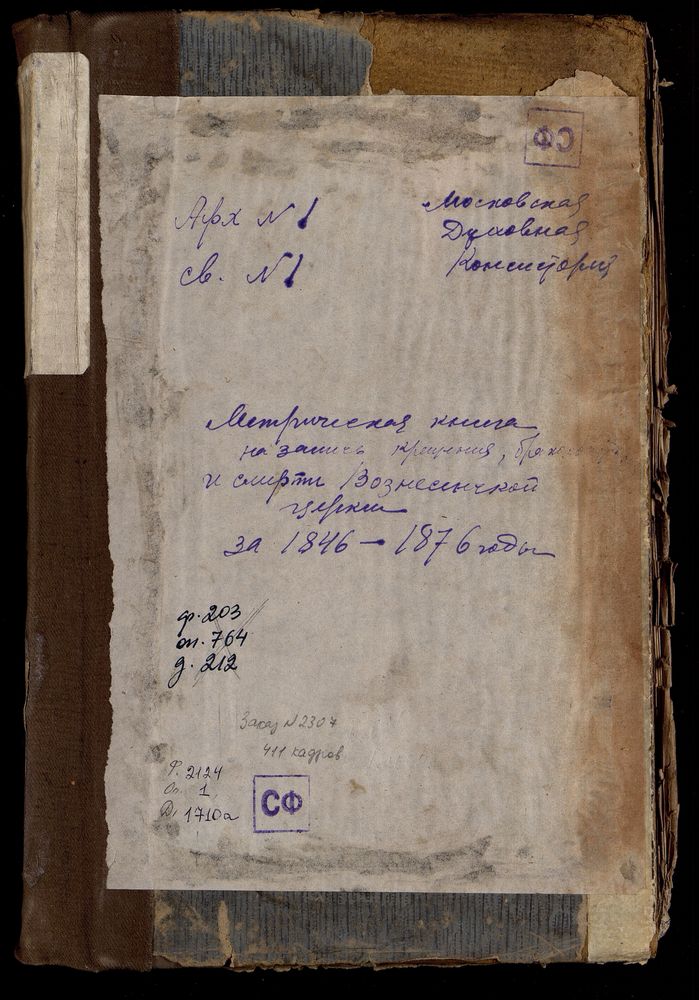 СФ
Арх № 1
св. № 1
Московская
Духовная
Консистория
Метрическая книга
на запись крещения,
и смерти Вознесенчкой
церкви
за 1846 – 1876 годы
ф. 203
оп. 764
д. 212
Заказ № 2307
411 кадров
Ф. 2124
Оп. 1
Д. 1710а
СФ